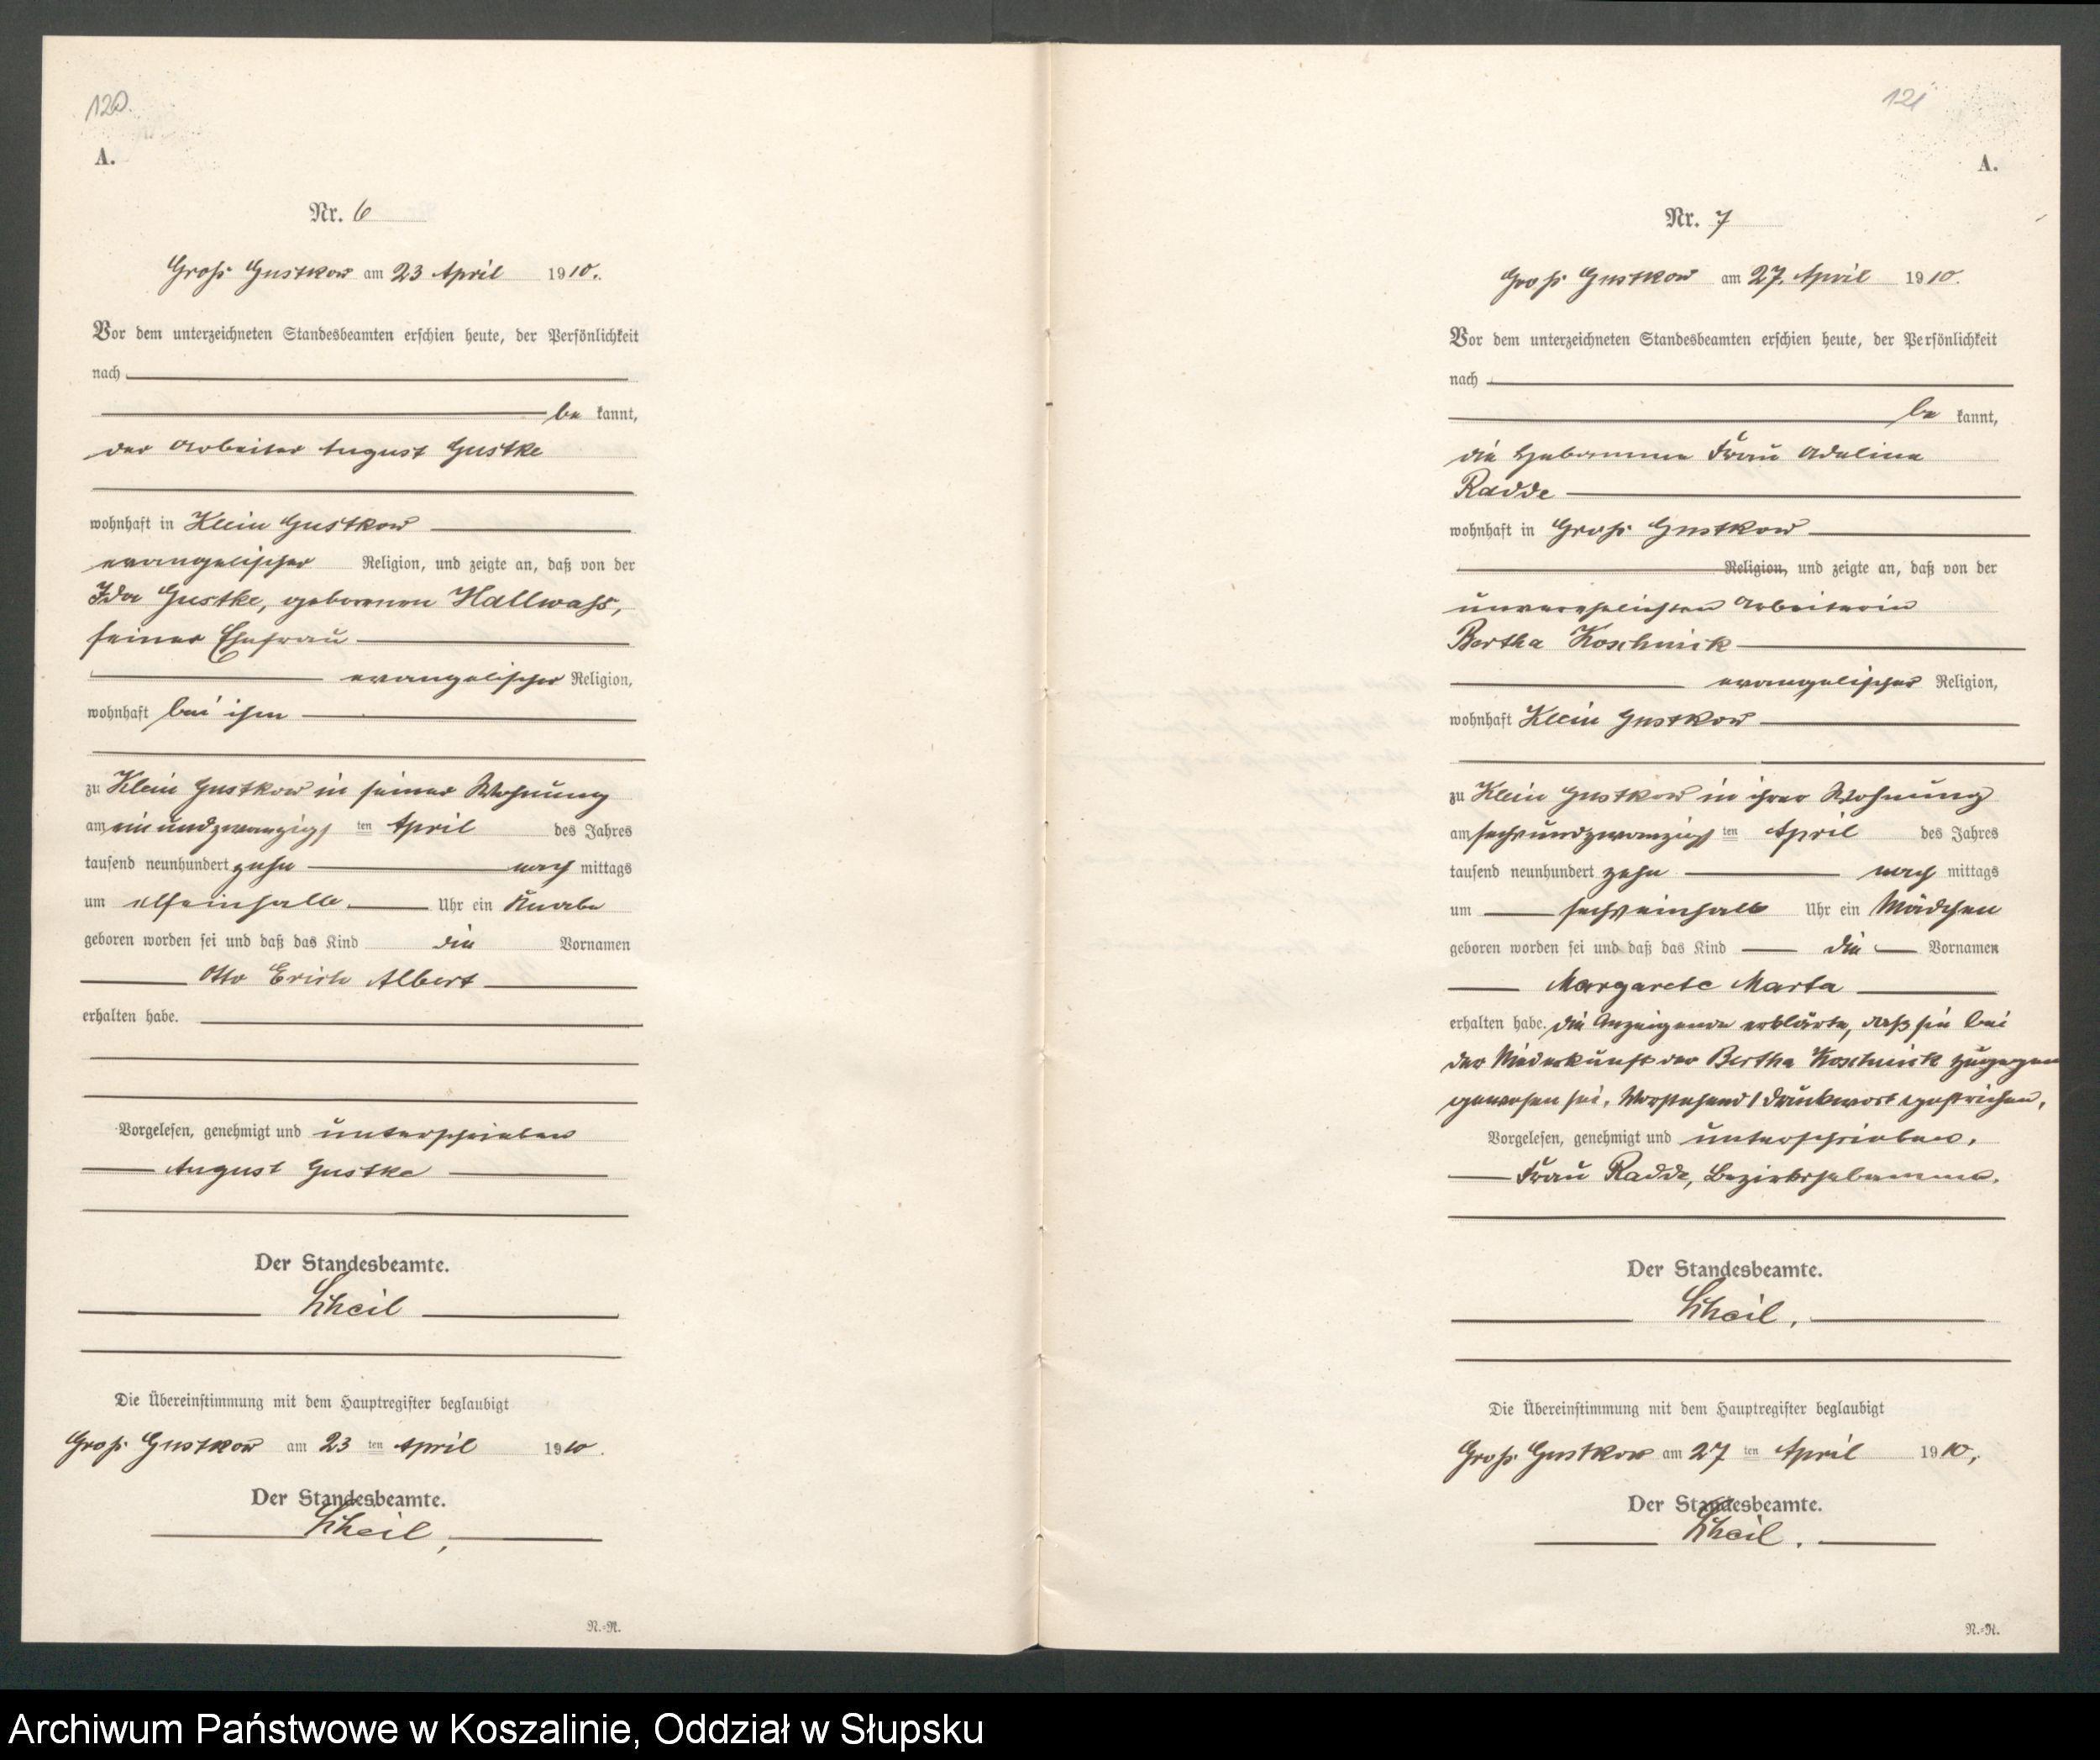 120.
A.
Nr. 6
Groß Gustkow am 23 April 1910.
Vor dem unterzeichneten Standesbeamten erschien heute, der Persönlichkeit
nach
be kannt,
der Arbeiter August Gustke
wohnhaft in Klein Gustkow
evangelischer Religion, und zeigte an, daß von der
Ida Gustke, geborenen Hallwaß,
seiner Ehefrau
evangelischer Religion,
wohnhaft bei ihm
zu Klein Gustkow in seiner Wohnung
am einundzwanzigsten April des Jahres
tausend neunhundert zehn nach mittags
um elfeinhalb Uhr ein Knabe
geboren worden sei und daß das Kind die Vornamen
Otto Erich Albert
erhalten habe.
Vorgelesen, genehmigt und unterschrieben
August Gustke
Der Standesbeamte.
Scheil
Die Übereinstimmung mit dem Hauptregister beglaubigt
Groß Gustkow am 23 ten April 1910.
Der Standesbeamte.
Scheil,
N.-N.
121
A.
Nr. 7
Groß Gustkow am 27. April 1910.
Vor dem unterzeichneten Standesbeamten erschien heute, der Persönlichkeit
nach
be kannt,
die Hebamme Frau Adeline
Radde
wohnhaft in Groß Gustkow
Religion, und zeigte an, daß von der
unverehelichten Arbeiterin
Bertha Koschnick
evangelischer Religion,
wohnhaft Klein Gustkow
zu Klein Gustkow in ihrer Wohnung
am sechsundzwanzigsten April des Jahres
tausend neunhundert zehn nach mittags
um sechseinhalb Uhr ein Mädchen
geboren worden sei und daß das Kind die Vornamen
Margarete Marta
erhalten habe. Die Anzeigende erklärte, daß sie bei
der Niederkunft der Bertha Koschnick zugegen
gewesen sei. Vorstehend 1 Druckwort gestrichen,
Vorgelesen, genehmigt und unterschrieben.
Frau Radde, Bezirkshebamme.
Der Standesbeamte.
Scheil.
Die Übereinstimmung mit dem Hauptregister beglaubigt
Groß Gustkow am 27 ten April 1910,
Der Standesbeamte.
Scheil.
N.-N.
Archiwum Państwowe w Koszalinie, Oddział w Słupsku